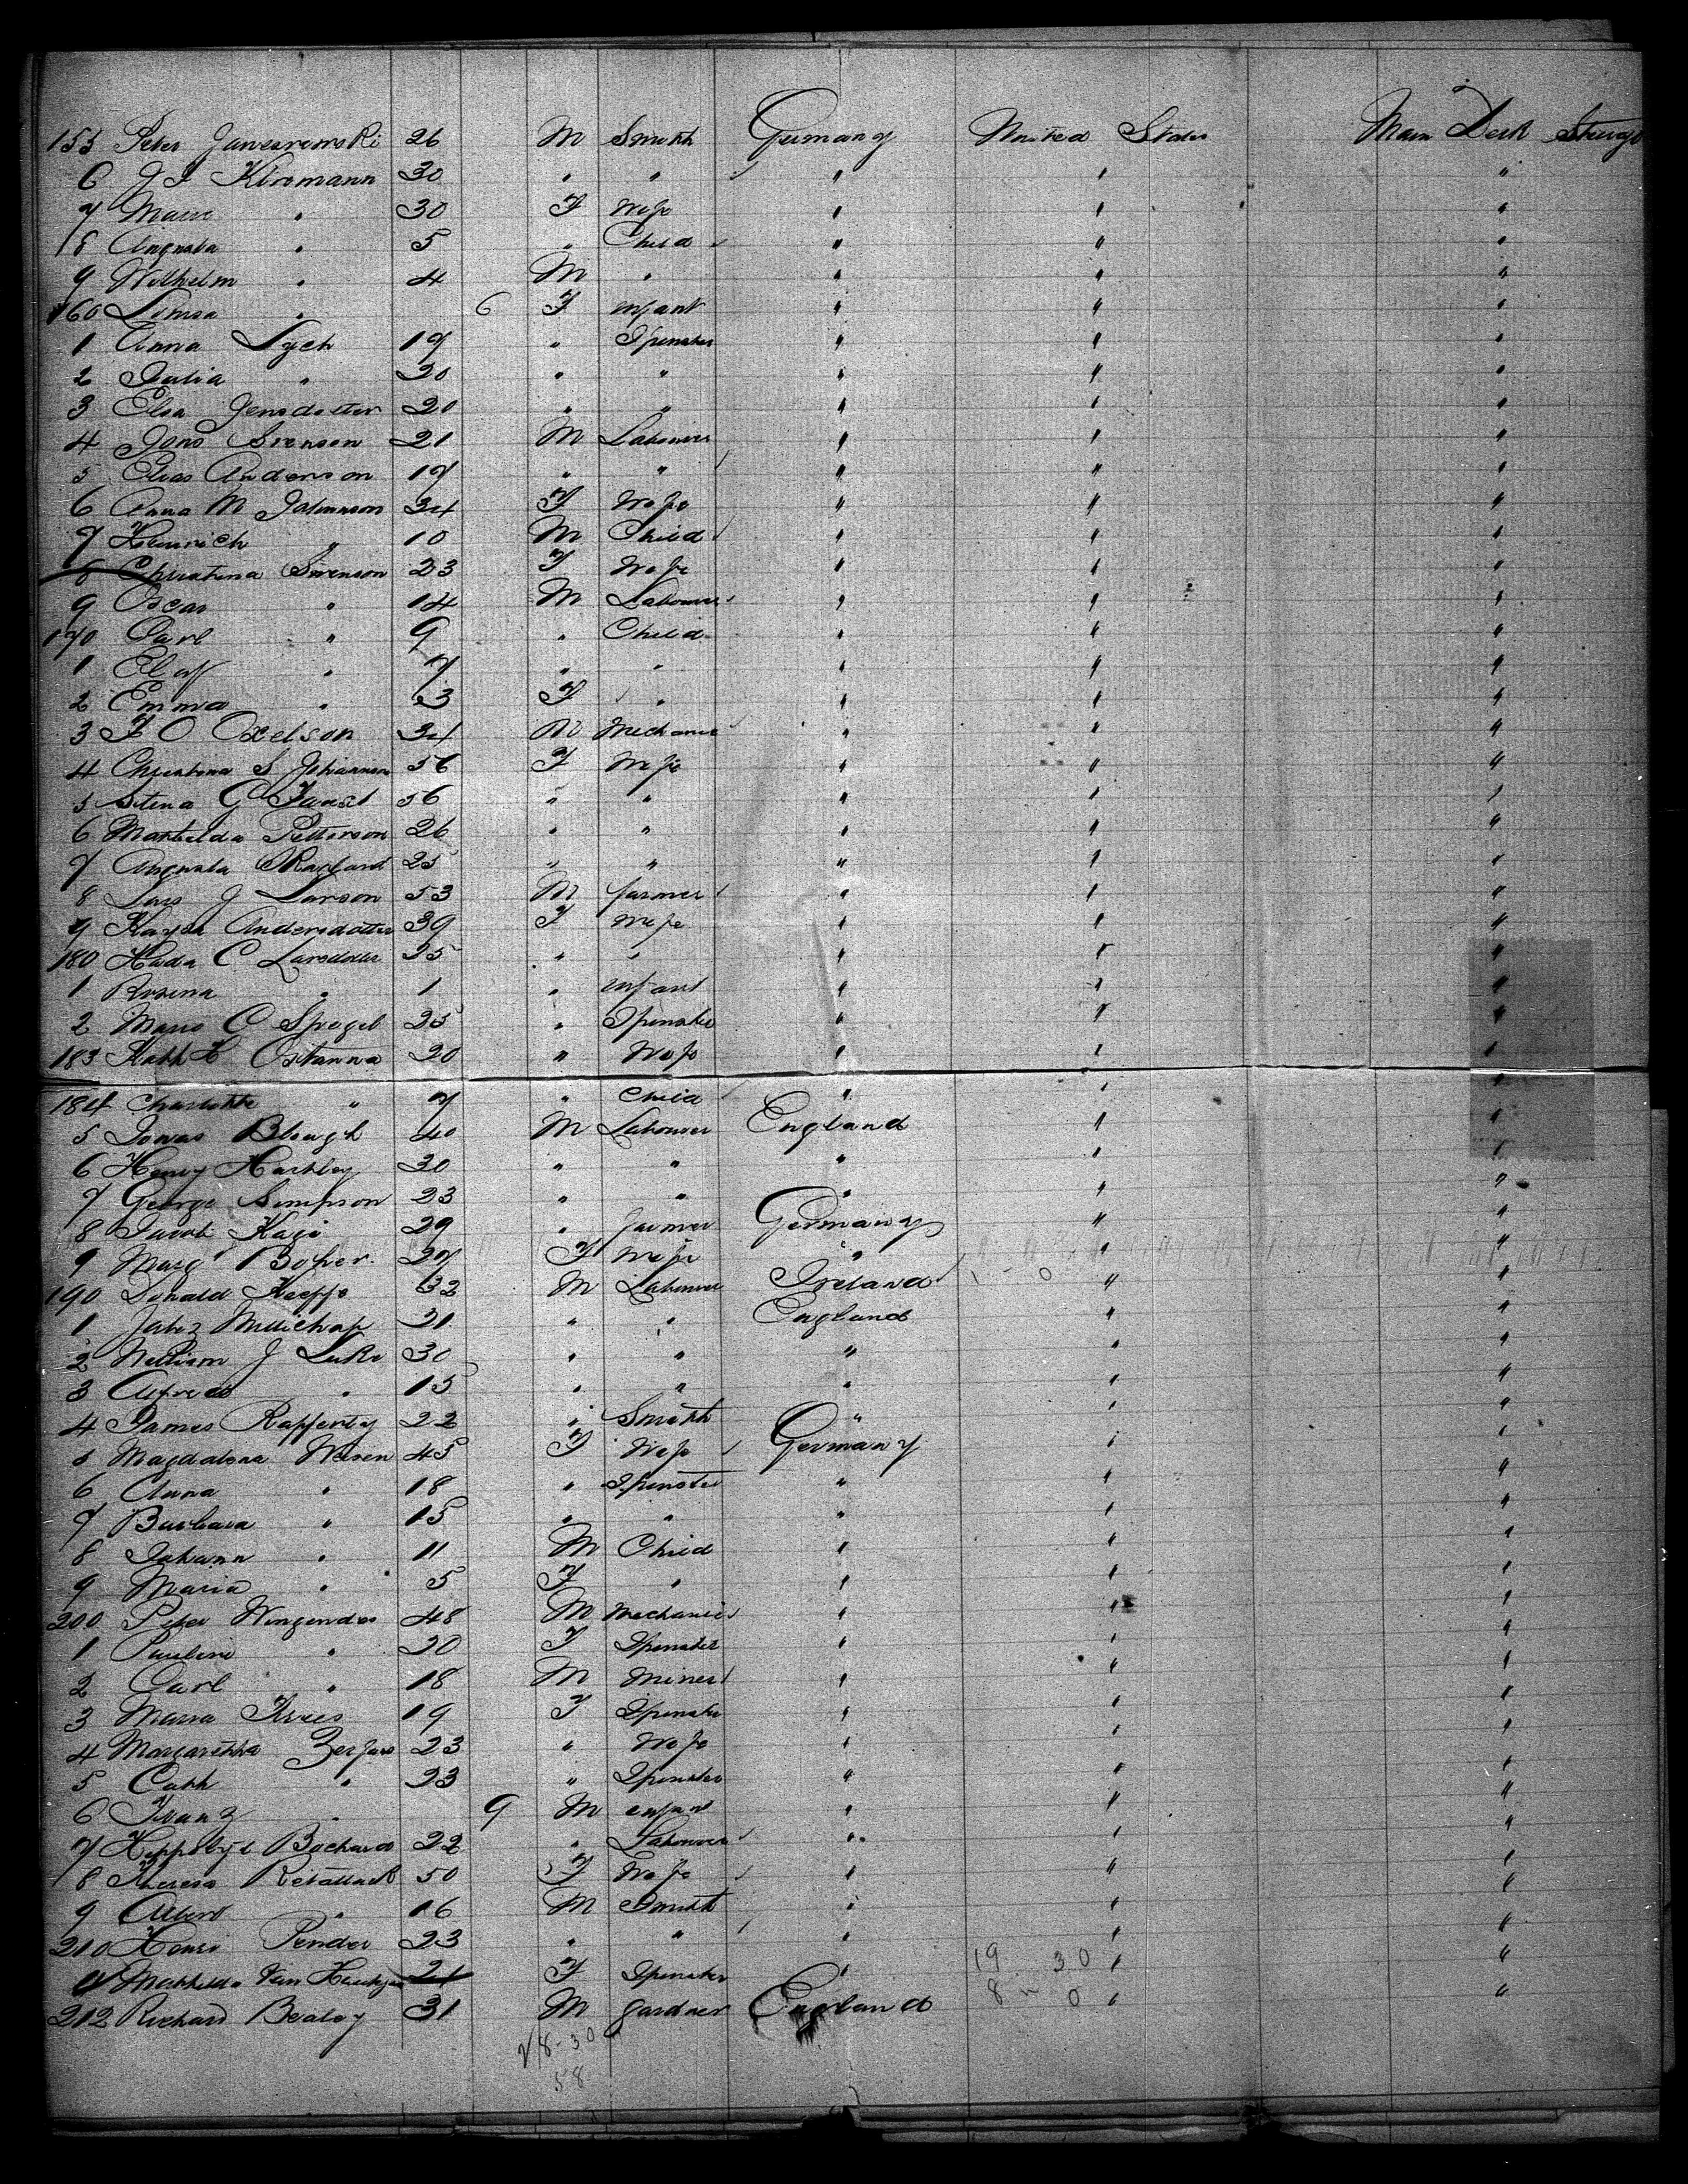 155 Peter Janesrowski 26 M Smith Germany United States Main Deck Steerage
6 J J Kirsmann 30 " " " " "
7 Marie " 30 F Wife " " "
8 Augusta " 5 " Child " " "
9 Wilhelm " 4 M " " " "
160 Louisa " 6 F infant " " "
1 Anna Lych 19 " Spinster " " "
2 Julia " 20 " " " " "
3 Elsa Jensdotter 20 " " " " "
4 Jons Svenson 21 M Labourer " " "
5 Elias Anderson 19 " " " " "
6 Anna M Johannson 34 F Wife " " "
7 Heinrich " 10 M Child " " "
8 Christina Svenson 23 F Wife " " "
9 Oscar " 14 M Labourer " " "
170 Carl " 9 " Child " " "
1 Elof " 7 " " " " "
2 Emma " 3 F " " " "
3 F O Oxelson 34 M Mechanic " " "
4 Christina S Johannson 56 F Wife " " "
5 Stena G Faust 56 " " " " "
6 Mathilda Petterson 26 " " " " "
7 Augusta 25 " " " " "
8 Lars J Larson 53 M farmer " " "
9 Kaysa Andersdotter 39 F Wife " " "
180 Hada C Larsdotter 35 " " " " "
1 Rosina " 1 " infant " " "
2 Marie C Spogel 25 " Spinster " " "
183 Kath H Ostanna 20 " Wife " " "
184 Charlotte " 7 " Child " " "
5 Jonas Blough 40 M Labourer England " "
6 Henry Hartley 30 " " " " "
7 George Simpson 23 " " " " "
8 Jacob Kagi 29 " farmer Germany " "
9 Marg Boher 27 F Wife " " "
190 Donald Keeffe 32 M Labourer Ireland " "
1 Jabez Millichap 21 " " England " "
2 William J Luke 30 " " " " "
3 Alfred " 15 " " " " "
4 James Rafferty 22 " Smith " " "
5 Magdalena Weisen 45 F Wife Germany " "
6 Anna " 18 " Spinster " " "
7 Barbara " 15 " " " " "
8 Johann " 11 M Child " " "
9 Maria " 5 F " " " "
200 Peter Wingender 48 M Mechanic " " "
1 Pauline " 20 F Spinster " " "
2 Carl " 18 M Miner " " "
3 Maria Krees 19 F Spinster " " "
4 Margaretha Zerfass 23 " Wife " " "
5 Cath " 23 " Spinster " " "
6 Franz " 9 M infant " " "
7 Bochard 22 " Labourer " " "
8 Theresa Retallack 50 F Wife " " "
9 Albert " 16 M Smith " " "
210 Henri Pender 23 " " " " "
11 Mathilda Van 21 F Spinster " 19 30 " "
212 Richard Bealey 31 M gardner England 8 0 " "
18-30
58